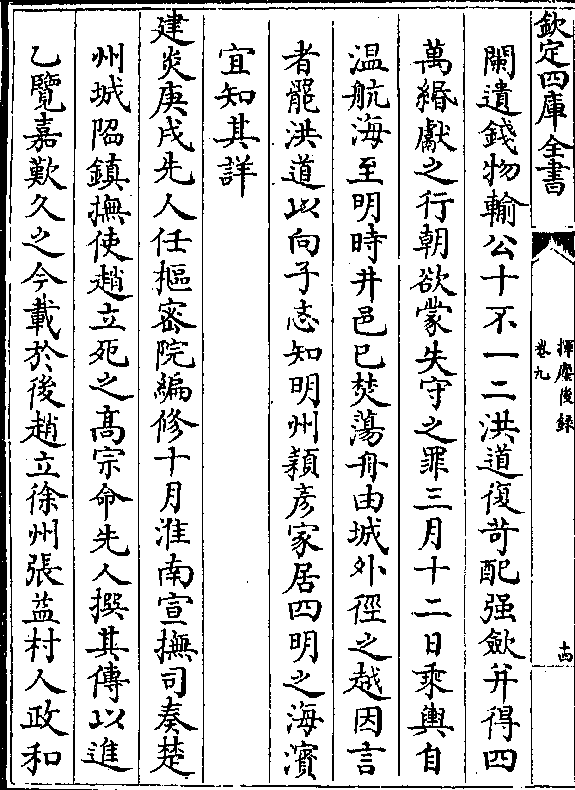 欽定四庫全書
揮麈後録
卷九
十四
闌遺錢物輸公十不一二洪道復苛配强歛并得四
萬緡獻之行朝欲蒙失守之罪三月十二日乘輿自
温航海至明時井邑已焚蕩舟由城外徑之越因言
者罷洪道以向子忞知明州穎彦家居四明之海濱
宜知其詳
建炎庚戌先人任樞密院編修十月淮南宣撫司奏楚
州城陷鎮撫使趙立死之髙宗命先人撰其傳以進
乙覽嘉歎久之今載於後趙立徐州張益村人政和